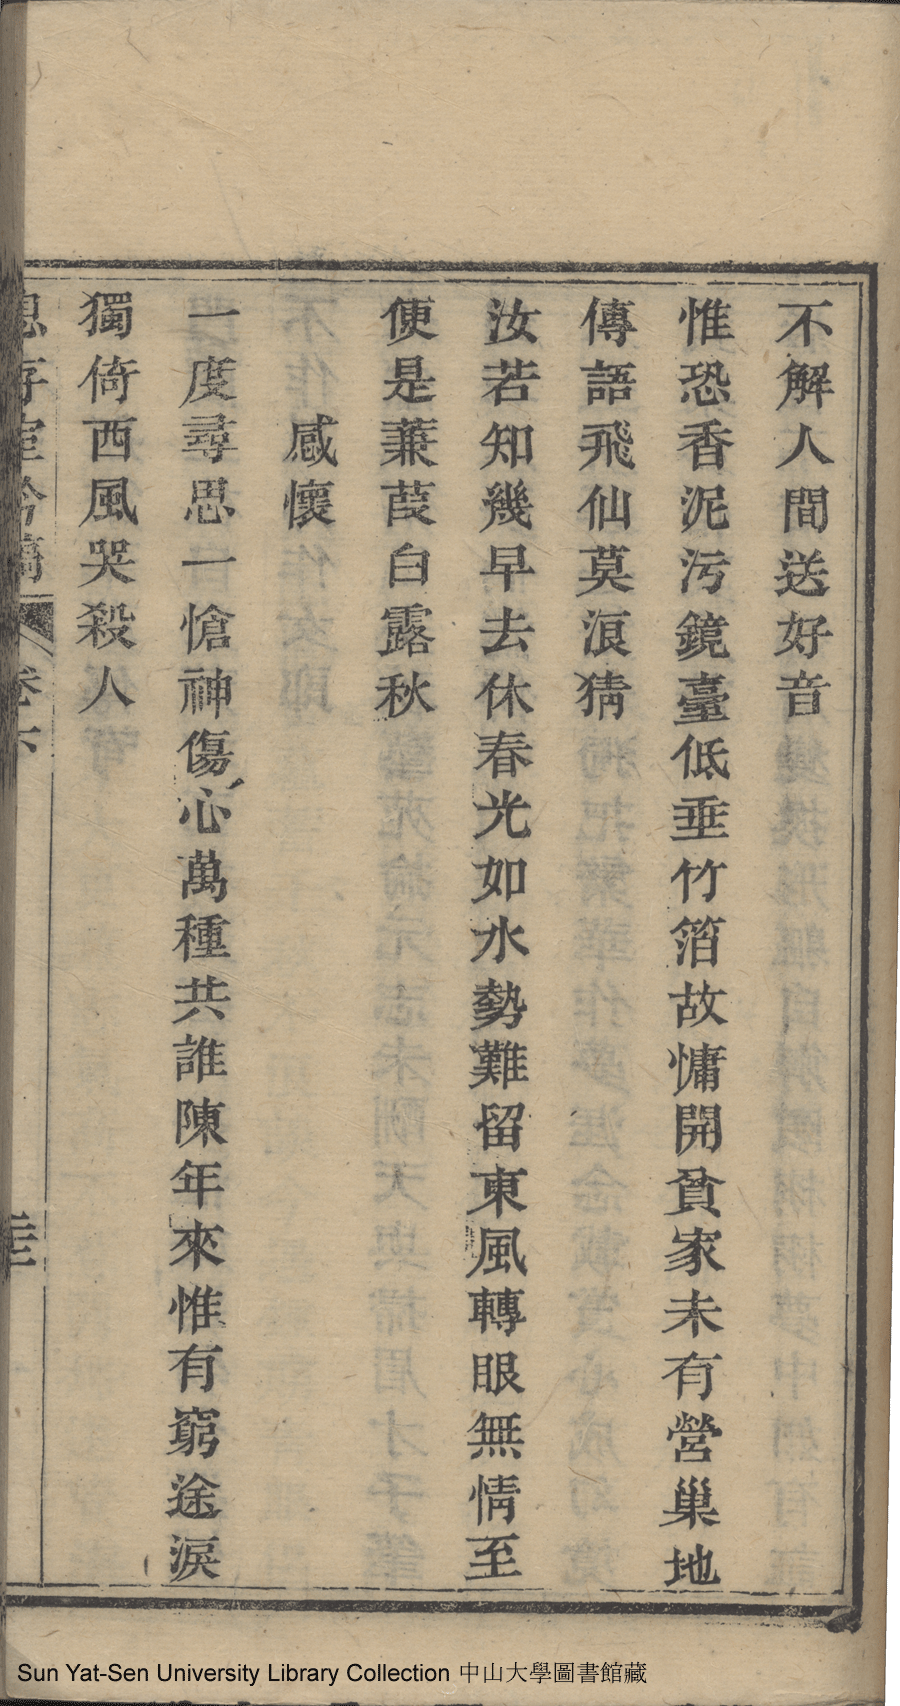 不解人間送好音
惟恐香泥污鏡臺低垂竹箔故慵開貧家未有營巢地
傳語飛仙莫浪猜
汝若知幾早去休春光如水勢難留東風轉眼無情至
便是蒹葭白露秋
感懷
一度尋思一愴神傷心萬種共誰陳年來惟有窮途淚
獨倚西風哭殺人
存室吟稿 卷六
Sun Yat-Sen University Library Collection 中山大學圖書館藏